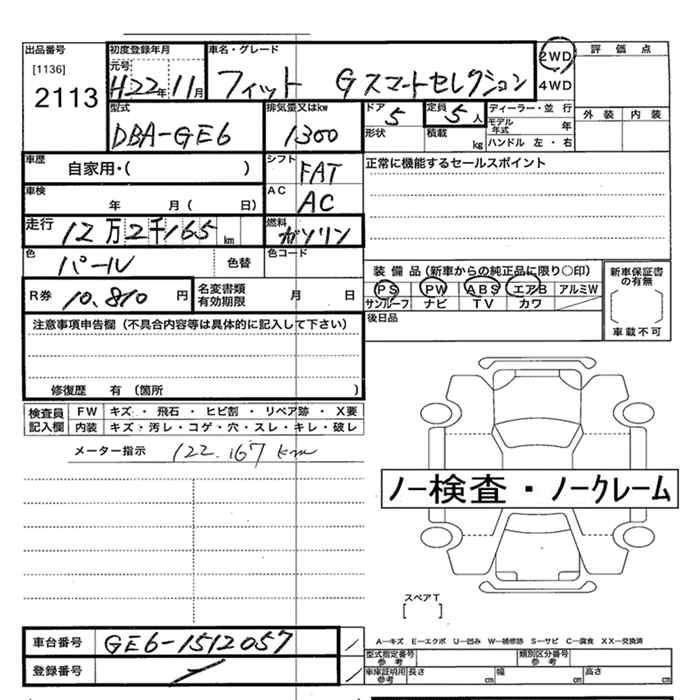 出品番号 初度登録年月 車名・グレード 2WD 評価点
[1136] 元号 4WD
2113 H22年11月 フィット Gスマートセレクション
型式 排気量又はkw ドア 定員 ディーラー・並行 外装 内装
DBA-GE6 1300 5 5人 モデル年式 年
形状 積載 kg ハンドル 左・右
車歴 自家用・( ) シフト FAT 正常に機能するセールスポイント
車検 年 月( 日) AC AC
走行 12万2千165km 燃料 ガソリン
色 パール 色替 色コード
装備品(新車からの純正品に限り○印) 新車保証書の有無
R券 10,810円 名変書類有効期限 月 日 PS PW ABS エアB アルミW
サンルーフ ナビ TV カワ 車載不可
注意事項申告欄(不具合内容等は具体的に記入して下さい) 後日品
修復歴 有(箇所 )
検査員記入欄 FW キズ・飛石・ヒビ割・リペア跡・X要
内装 キズ・汚レ・コゲ・穴・スレ・キレ・破レ
メーター指示 122.167km
ノー検査・ノークレーム
スペアT
[ ]
車台番号 GE6-1512057 /
A−キズ E−エクボ U−凹み W−補修跡 S−サビ C−腐食 XX−交換済
登録番号 / 型式指定番号 参考 類別区分番号 参考
車庫証明用 参考 長さ cm 幅 cm 高さ cm